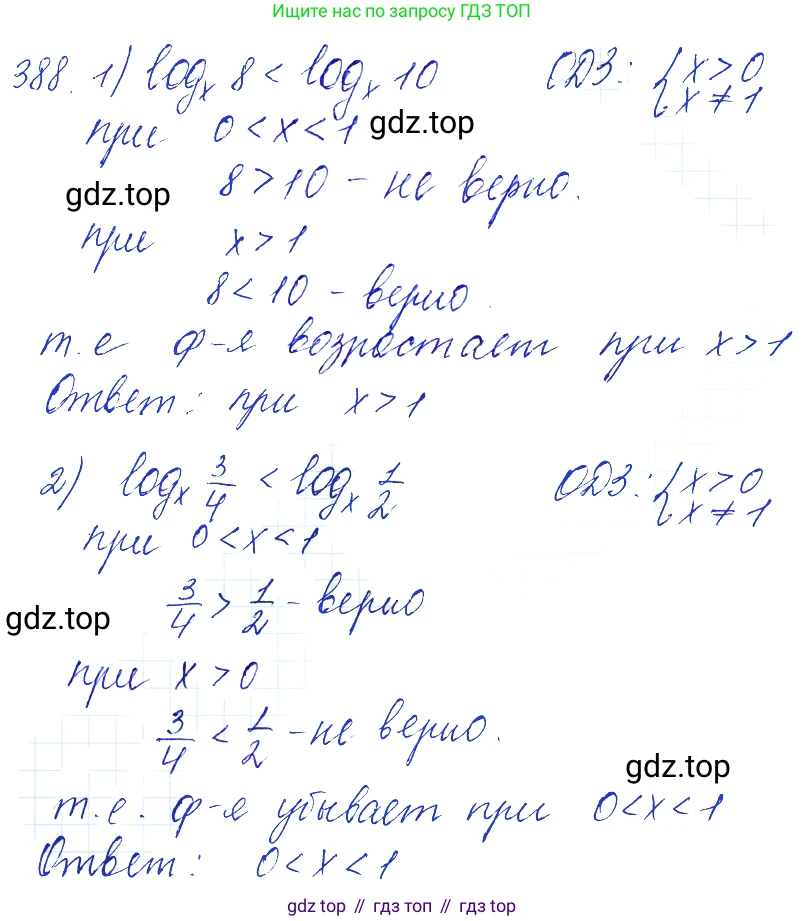 Ищите нас по запросу ГДЗ ТОП
388. 1) logₓ 8 < logₓ 10 ОДЗ: { x > 0
{ x ≠ 1
при 0 < x < 1 gdz.top
gdz.top 8 > 10 – не верно.
при x > 1
8 < 10 – верно.
т.е ф-я возрастает при x > 1
Ответ: при x > 1
2) logₓ 3/4 < logₓ 1/2 ОДЗ: { x > 0
{ x ≠ 1
при 0 < x < 1
gdz.top 3/4 > 1/2 – верно
при x > 0
3/4 < 1/2 – не верно.
gdz.top
т.е. ф-я убывает при 0 < x < 1
Ответ: 0 < x < 1
gdz top // гдз топ // gdz top